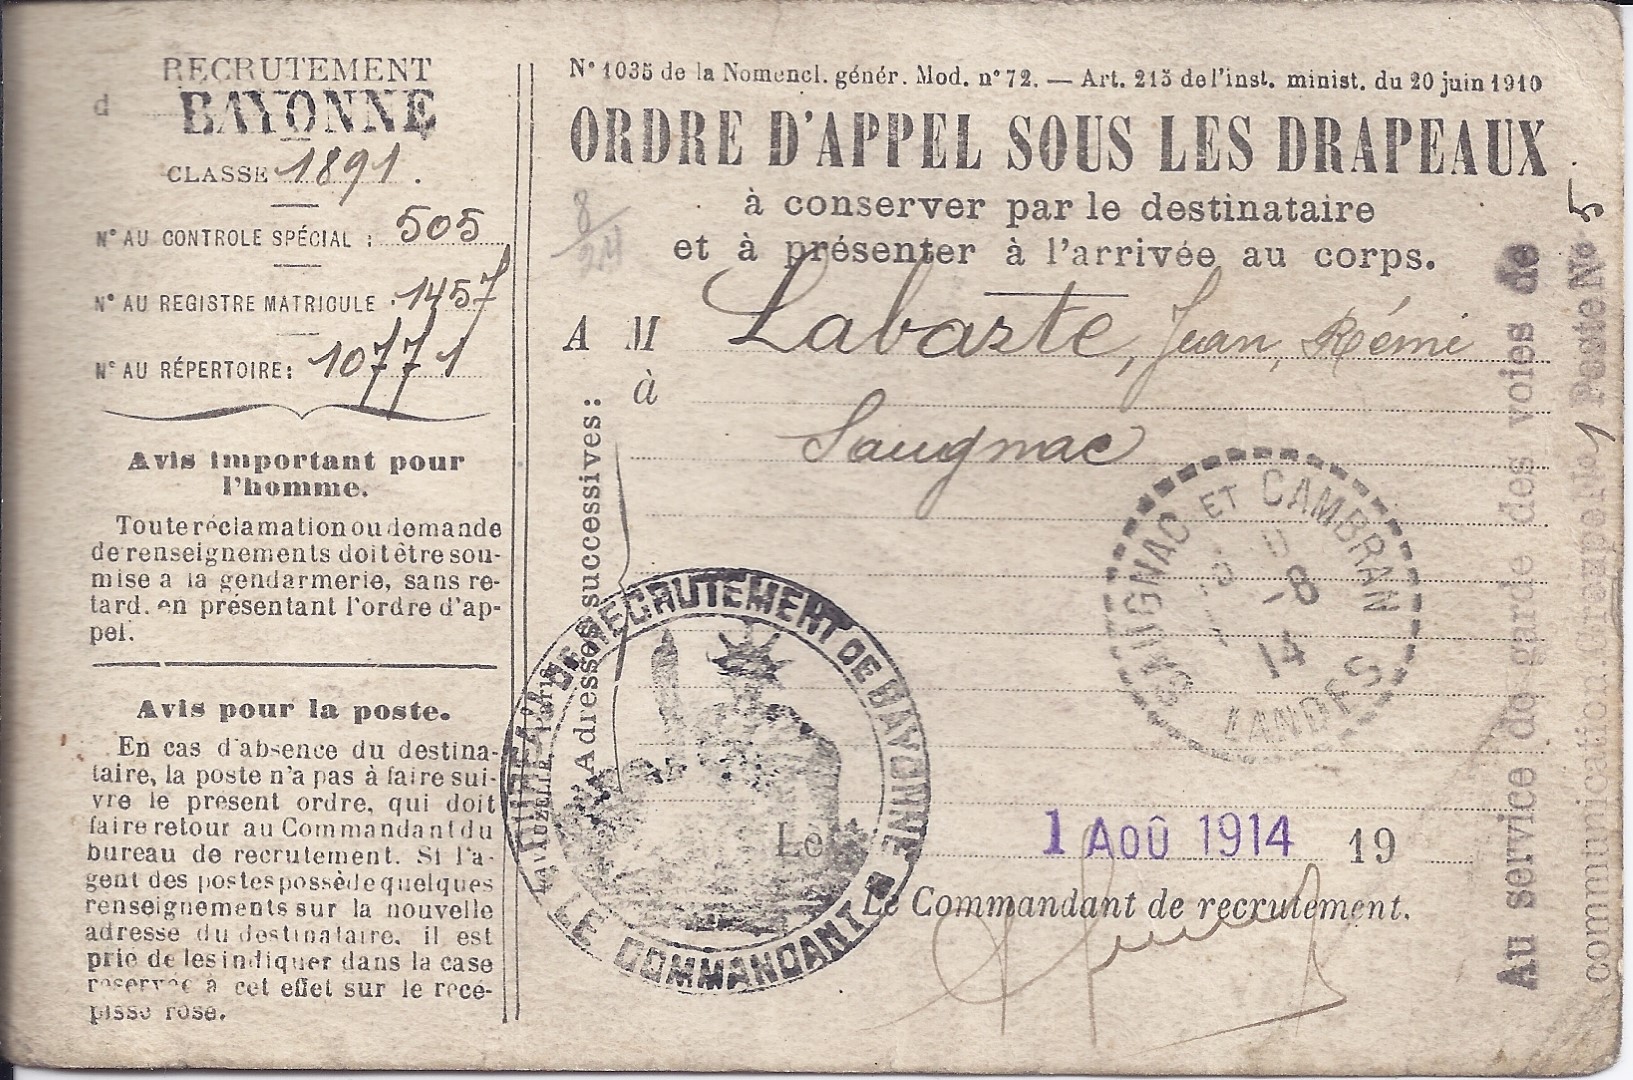 RECRUTEMENT
d BAYONNE
CLASSE 1891.
N° AU CONTROLE SPÉCIAL : 505
N° AU REGISTRE MATRICULE. 1457
N° AU RÉPERTOIRE: 10771
Avis important pour
l'homme.
Toute réclamation ou demande
de renseignements doit être sou-
mise a la gendarmerie, sans re-
tard. en présentant l'ordre d'ap-
pel.
Avis pour la poste.
En cas d'absence du destina-
taire, la poste n'a pas à faire sui-
vre le présent ordre, qui doit
faire retour au Commandant du
bureau de recrutement. Si l'a-
gent des postes possède quelques
renseignements sur la nouvelle
adresse du destinataire. il est
prié de les indiquer dans la case
reservée à cet effet sur le recé-
pissé rose.
N° 1035 de la Nomencl. génér. Mod. n° 72. — Art. 215 de l'inst. minist. du 20 juin 1910
ORDRE D'APPEL SOUS LES DRAPEAUX
à conserver par le destinataire
et à présenter à l'arrivée au corps.
8/24
A M Labaste, Jean, Rémi
à
Saugnac
Adresses successives:
SAUGNAC ET CAMBRAN
-8
14
LANDES
BUREAU DE RECRUTEMENT DE BAYONNE
LE COMMANDANT
LAVAUZELLE. Paris
Le 1 AOÛ 1914 19
Le Commandant de recrutement.
Au service de garde des voies de
communication. Groupe No 1 Poste No 5.